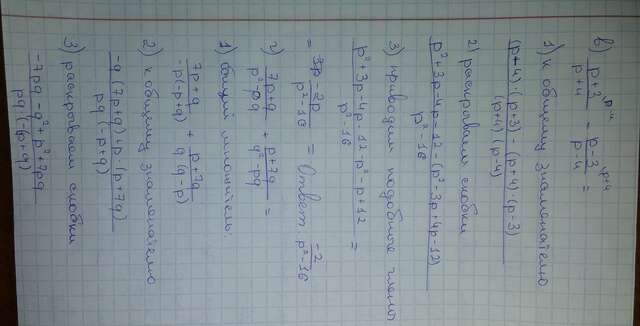 в) p+3/p+4 ^p-4 - p-3/p-4 ^p+4 =
1) к общему знаменателю
(p-4)·(p+3) - (p+4)·(p-3) / (p+4)(p-4)
2) раскрываем скобки
p²+3p-4p-12-(p²-3p+4p-12) / p²-16
3) приводим подобные члены
p²+3p-4p-12-p²-p+12 / p²-16 =
= 3p-2p / p²-16 = Ответ: -2 / p²-16
г) 7p+q / p²-pq + p+7q / q²-pq =
1) общий множитель:
7p+q / -p(-p+q) + p+7q / q(q-p)
2) к общему знаменателю
-q(7p+q)+p·(p+7q) / pq(-p+q)
3) раскрываем скобки
-7pq-q²+p²+7pq / pq(-p+q)